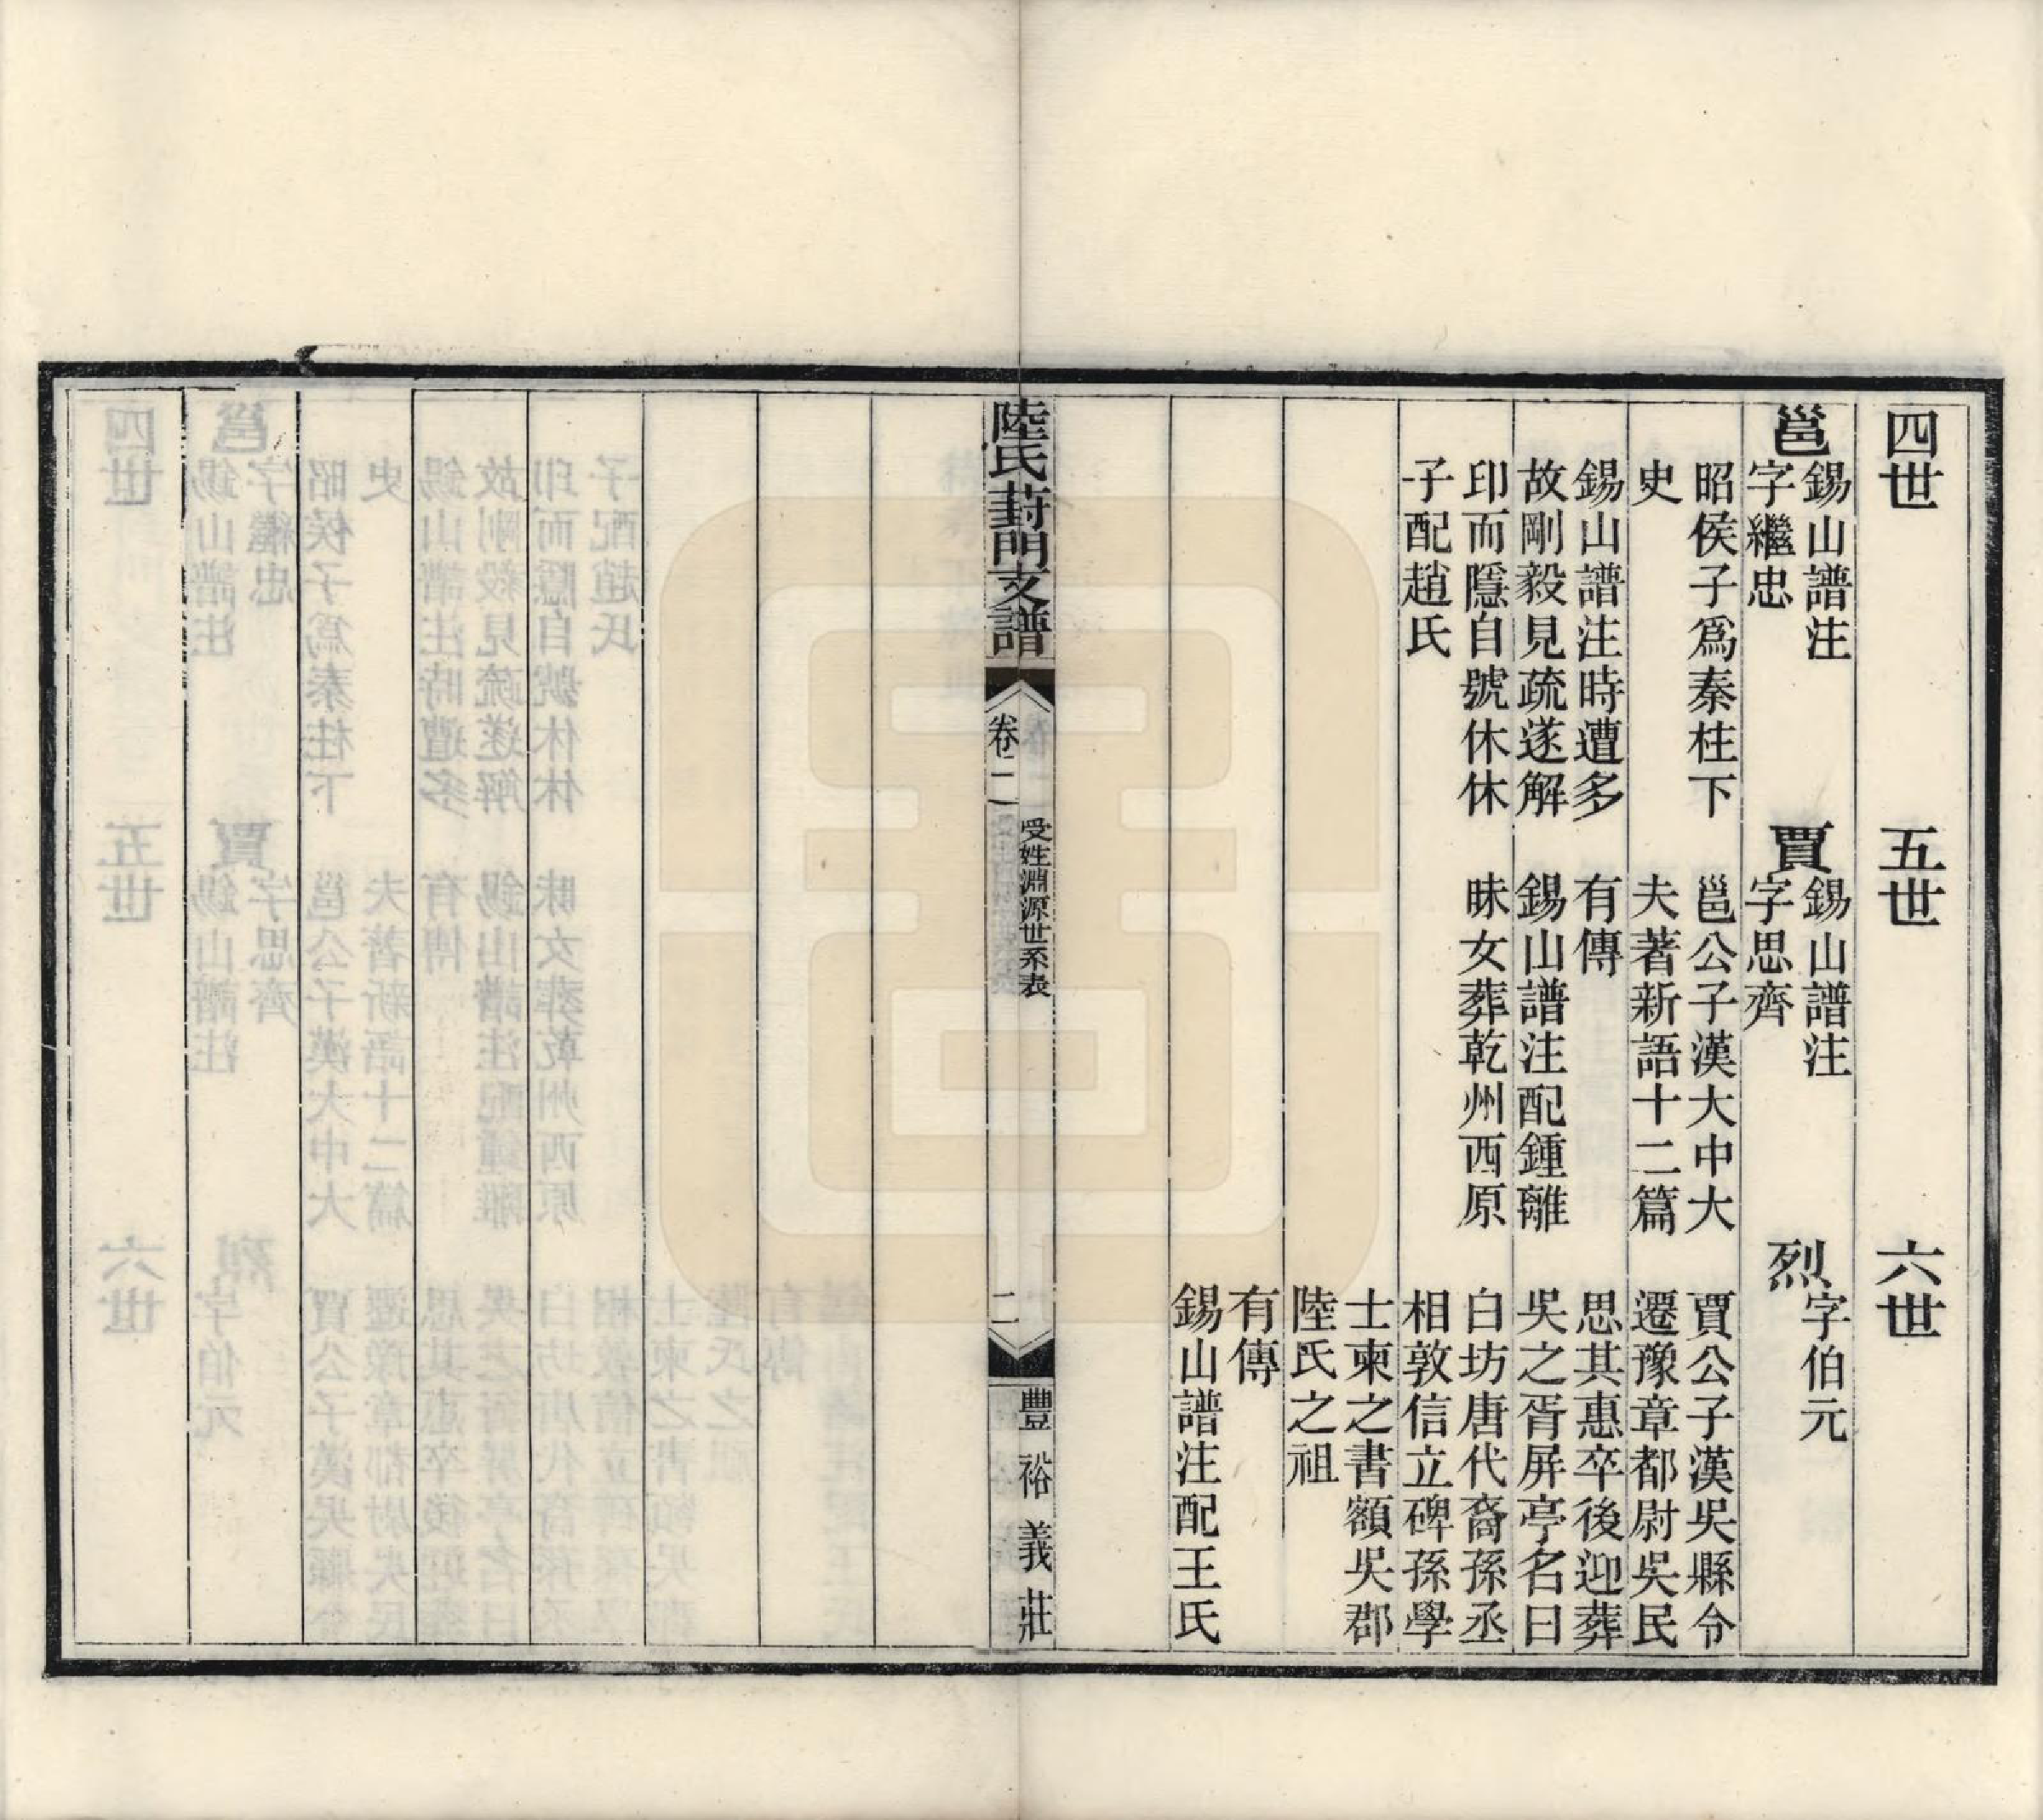 四世
五世
六世
邕
錫山譜注
字繼忠
昭侯子爲秦柱下
史
錫山譜注時遭多
故剛毅見疏遂解
印而隱自號休休
子配趙氏
賈
錫山譜注
字思齊
邕公子漢大中大
夫著新語十二篇
有傳
錫山譜注配鍾離
昧女葬乾州西原
烈
字伯元
賈公子漢吳縣令
遷豫章都尉吳民
思其惠卒後迎葬
吳之胥屏亭名曰
白坊唐代裔孫丞
相敦信立碑孫學
士柬之書額吳郡
陸氏之祖
有傳
錫山譜注配王氏
陸氏葑門支譜
卷二
受姓淵源世系表
二
豐裕義莊